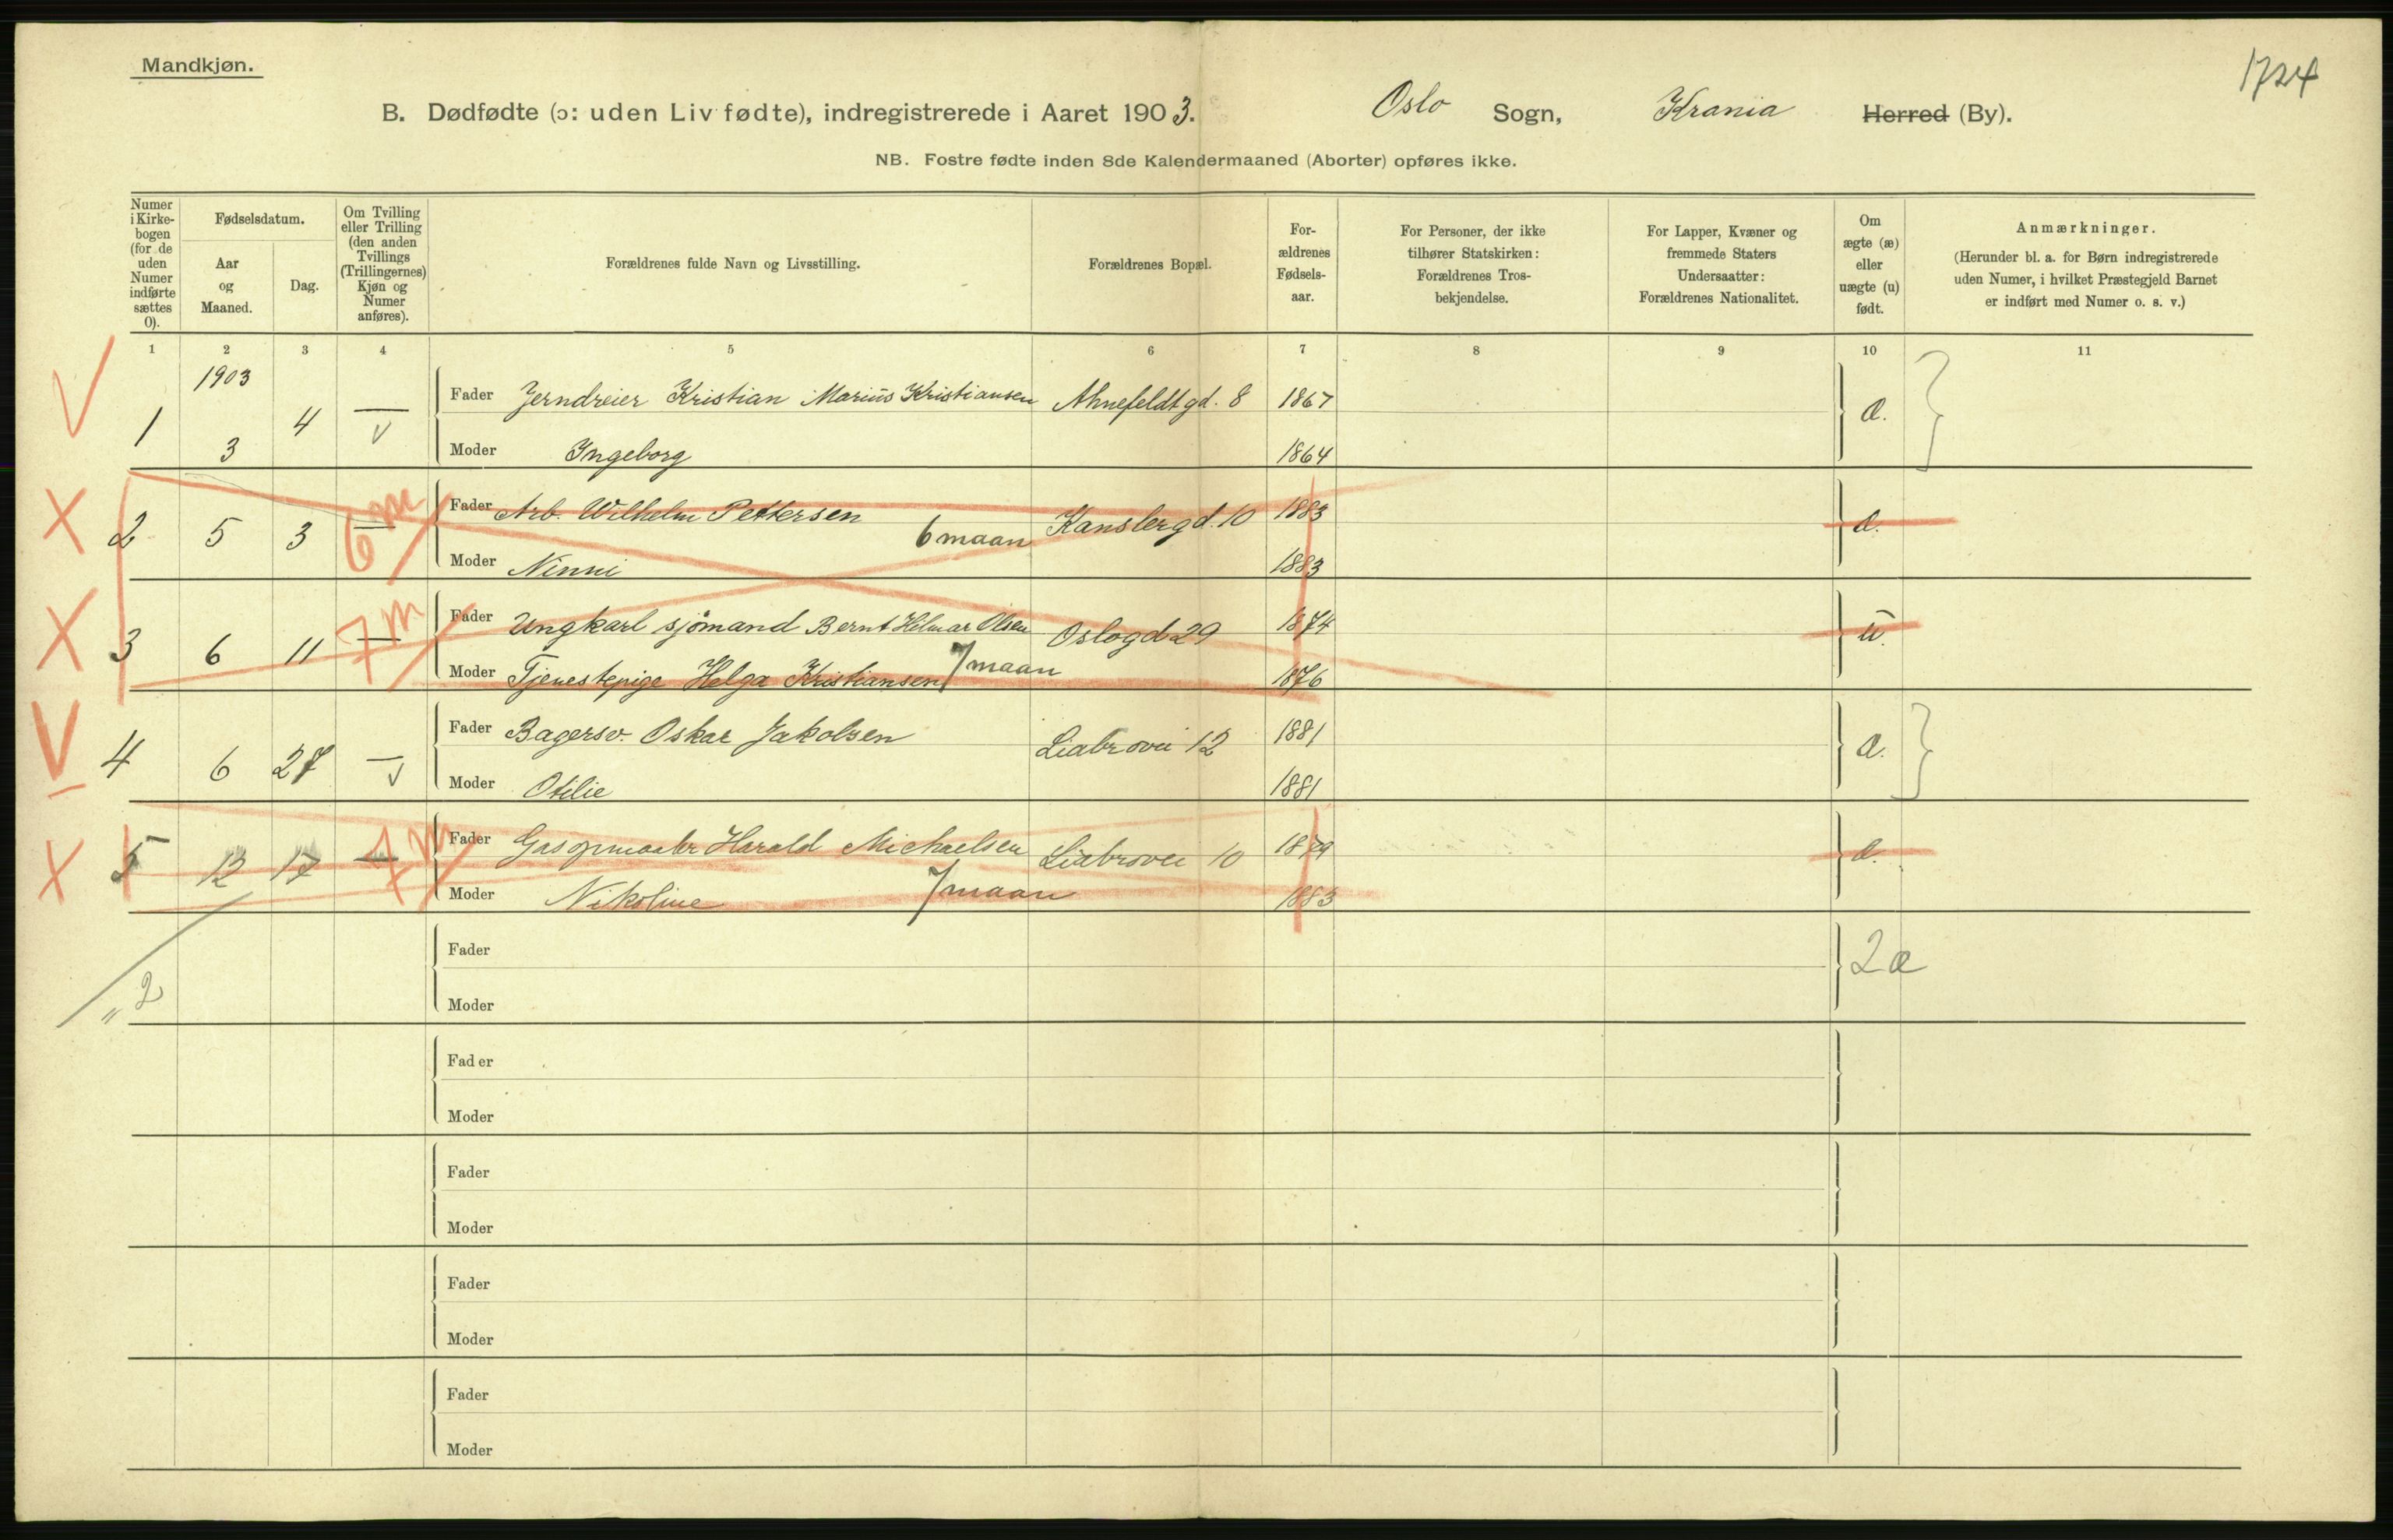 Mandkjøn.
1724
B. Dødfødte (ɔ: uden Liv fødte), indregistrerede i Aaret 1903. Oslo Sogn, Krania Herred (By).
NB. Fostre fødte inden 8de Kalendermaaned (Aborter) opføres ikke.
Numer i Kirkebogen (for de uden Numer indførte sættes 0).
Fødselsdatum.
Aar og Maaned.
Dag.
Om Tvilling eller Trilling (den anden Tvillings (Trillingernes) Kjøn og Numer anføres).
Forældrenes fulde Navn og Livsstilling.
Forældrenes Bopæl.
Forældrenes Fødselsaar.
For Personer, der ikke tilhører Statskirken: Forældrenes Trosbekjendelse.
For Lapper, Kvæner og fremmede Staters Undersaatter: Forældrenes Nationalitet.
Om ægte (æ) eller uægte (u) født.
Anmærkninger.
(Herunder bl. a. for Børn indregistrerede uden Numer, i hvilket Præstegjeld Barnet er indført med Numer o. s. v.)
1 2 3 4 5 6 7 8 9 10 11
1903
1 3 4 — Fader Jerndreier Kristian Marius Kristiansen Ahnefeldtgd. 8 1867 æ.
Moder Ingeborg 1864
2 5 3 — 6 m Fader Arb. Wilhelm Pettersen 6 maan Kanslergd. 10 1883 æ.
Moder Ninni 1883
3 6 11 — 7 m Fader Ungkarl sjømand Bernt Hilmar Olsen Oslogd 29 1874 u.
Moder Tjenestepige Helga Kristiansen 7 maan 1876
4 6 27 — Fader Bagersv. Oskar Jakobsen Liabrovei 12 1881 æ.
Moder Otilie 1881
5 12 17 — 7 m Fader Harald Michaelsen Liabrovei 10 1879 æ.
Moder Nikoline 7 maan 1883
" 2
Fader 2 æ
Moder
Fader
Moder
Fader
Moder
Fader
Moder
Fader
Moder